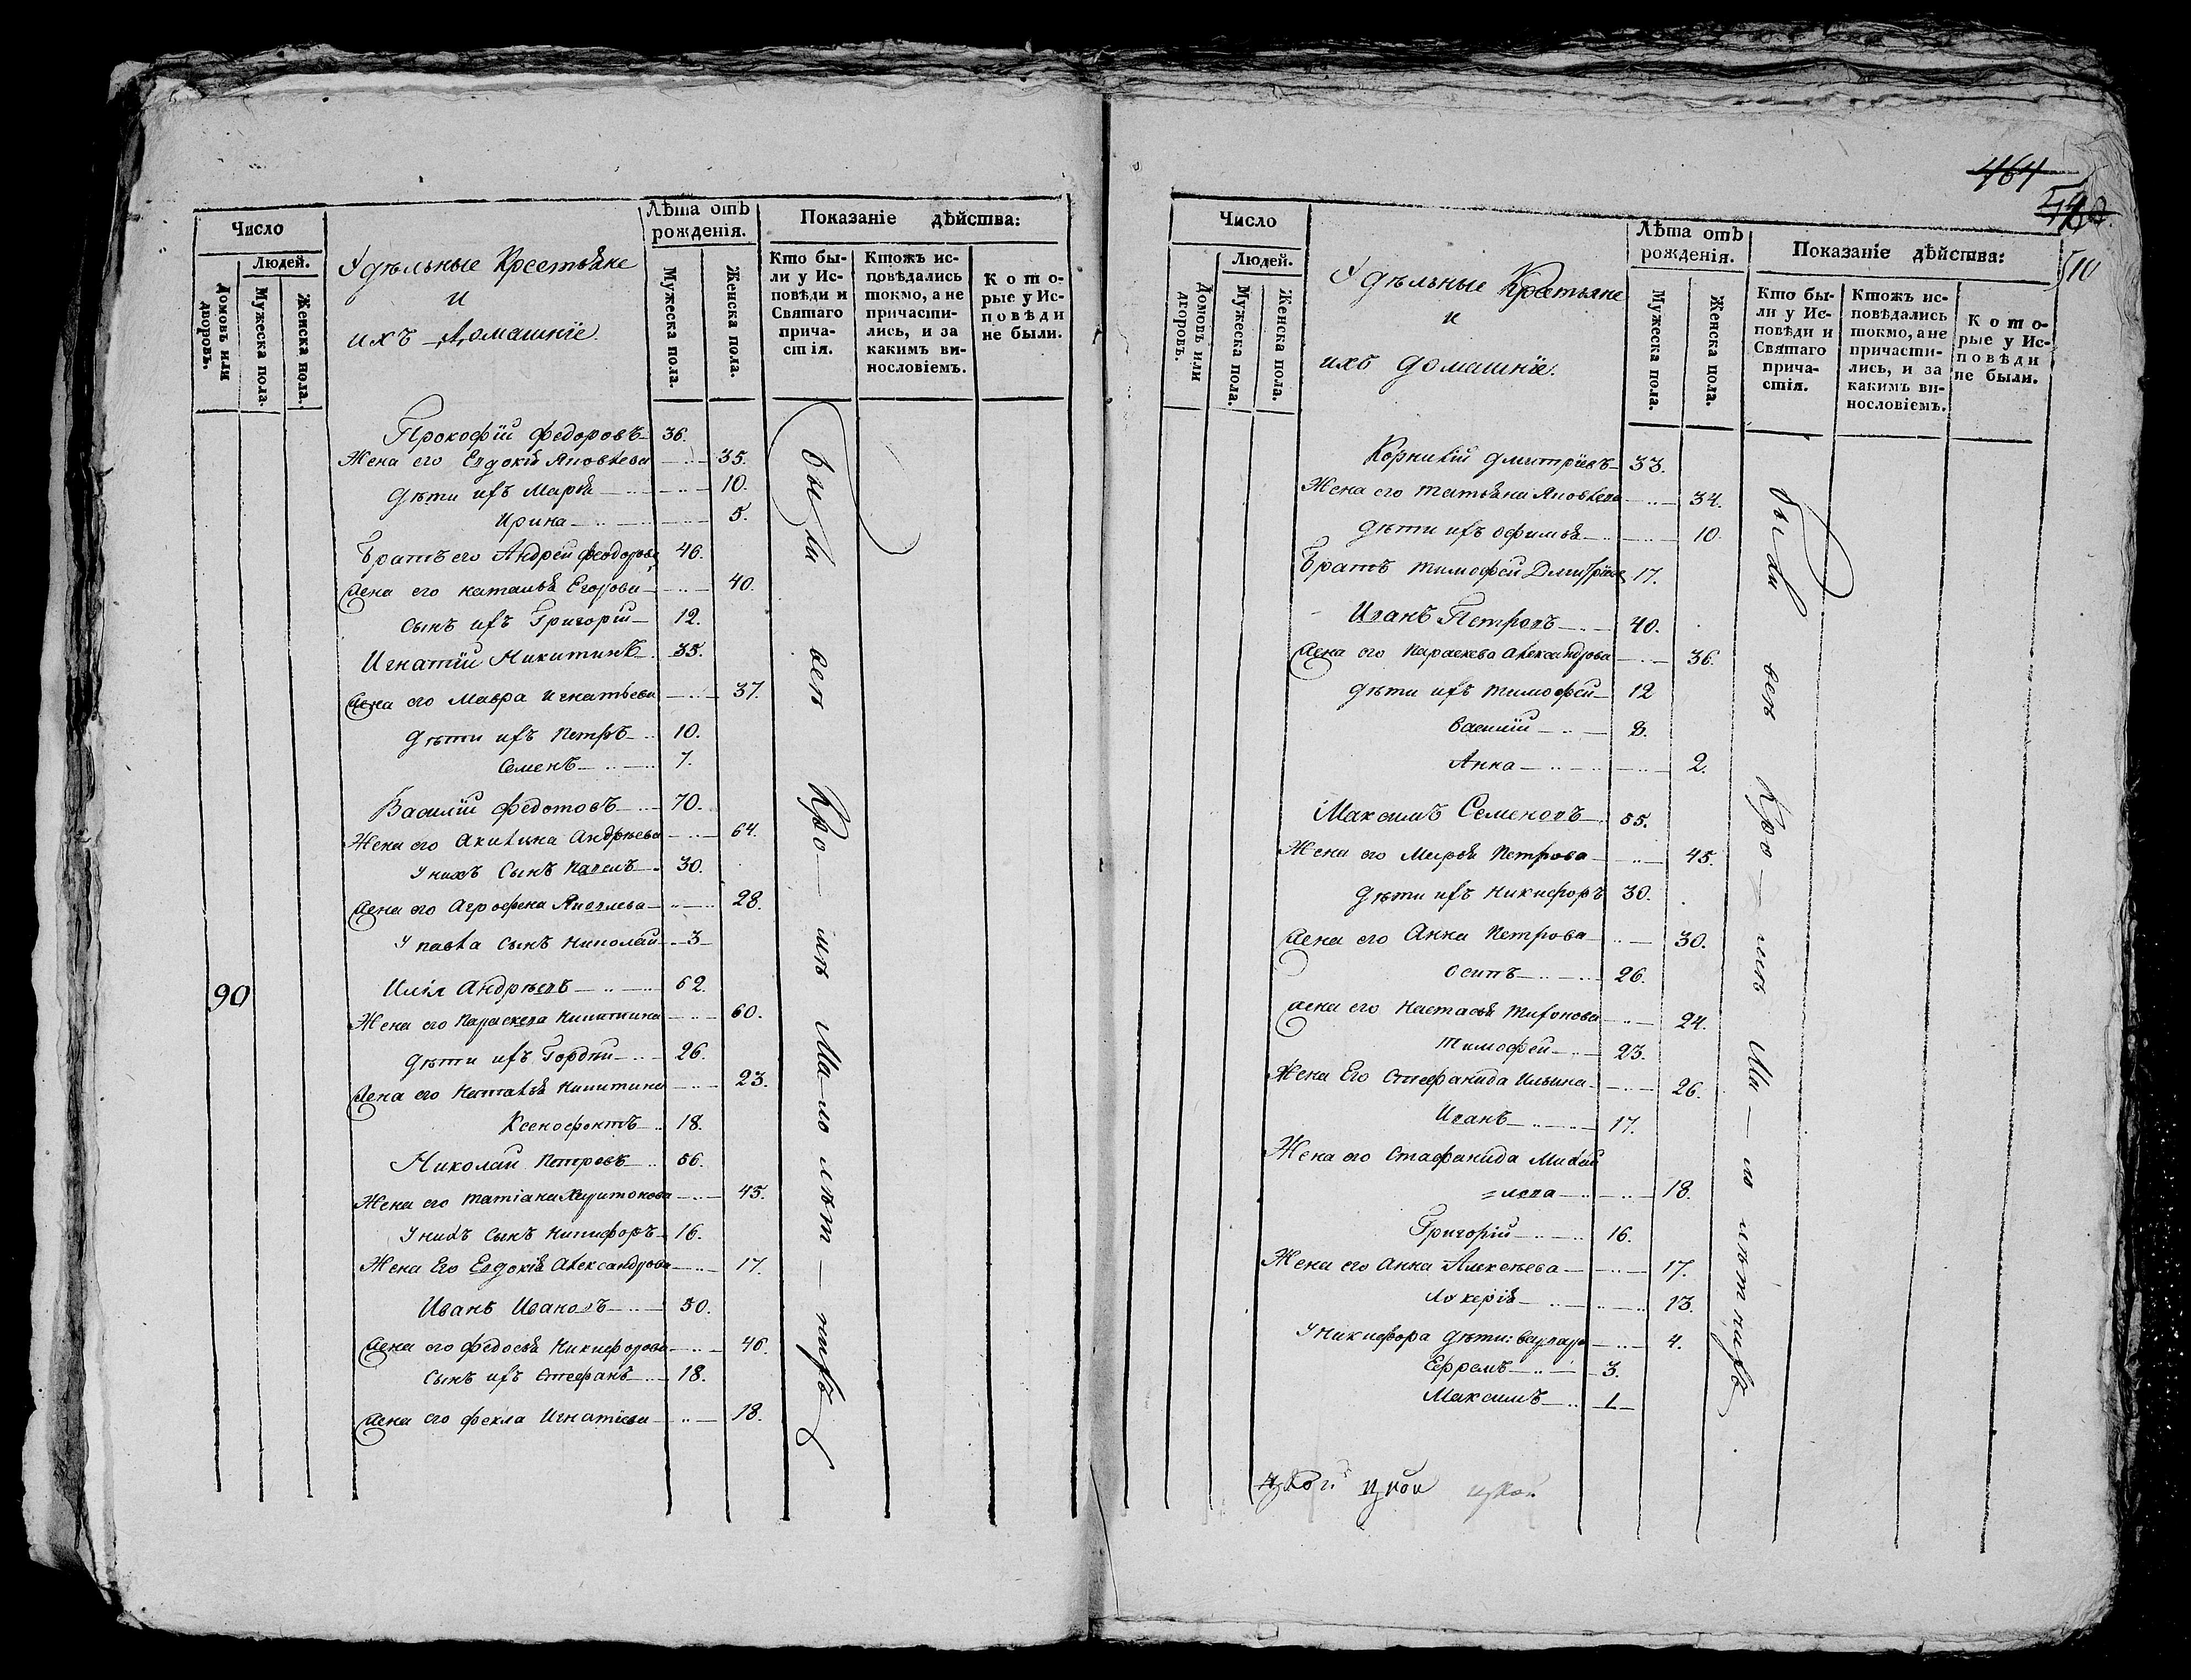 Число
Людей.
Домовъ или дворовъ.
Мужеска пола.
Женска пола.
Удѣльные Крестьяне
и
ихъ Домашніе.
Лѣта отъ рожденія.
Мужеска пола.
Женска пола.
Показаніе дѣйства:
Кто были у Исповѣди и Святаго причастія.
Ктожъ исповѣдались токмо, а не причастились, и за какимъ винословіемъ.
Которые у Исповѣди не были.
Прокофій Федоровъ 36.
Жена его Евдокія Яковлева 35.
Дѣти ихъ Марья 10.
Ирина 5.
Братъ его Андрей Феодоровъ 46.
Жена его Наталья Егорова 40.
Сынъ ихъ Григорій 12.
Игнатій Никитинъ 35.
Жена его Мавра Игнатьева 37.
Дѣти ихъ Петръ 10.
Семенъ 7.
Василій Федотовъ 70.
Жена его Акилина Андрѣева 64.
У нихъ Сынъ Павелъ 30.
Жена его Агрофена 28.
У Павла Сынъ Николай 3
90
Илія Андрѣевъ 62.
Жена его Параскева Никитина 60.
Дѣти ихъ Гордѣй 26.
Жена его Наталья Никитина 23.
Ксенофонтъ 18.
Николай Петровъ 56.
Жена его Татіана Харитонова 45.
У нихъ Сынъ Никифоръ 16.
Жена Его Евдокія Александрова 17.
Иванъ Ивановъ 50.
Жена его Федосья Никифорова 46.
Сынъ ихъ Стефанъ 18.
Жена его Фекла Игнатіева 18.
были всѣ Кро-мѣ Ма-ло лѣт-нихъ
464
510
Число
Людей.
Домовъ или дворовъ.
Мужеска пола.
Женска пола.
Удѣльные Крестьяне
и
ихъ домашніе.
Лѣта отъ рожденія.
Мужеска пола.
Женска пола.
Показаніе дѣйства:
Кто были у Исповѣди и Святаго причастія.
Ктожъ исповѣдались токмо, а не причастились, и за какимъ винословіемъ.
Которые у Исповѣди не были.
Корнилій Дмитріевъ 33.
Жена его Татьяна Яковлева 34.
Дѣти ихъ Офимья 10.
Братъ Тимофей Дмитріевъ 17.
Иванъ Петровъ 40.
Жена его Параскева Александрова 36.
Дѣти ихъ Тимофей 12
Василій 8.
Анна 2.
Максимъ Семеновъ 55.
Жена его Марья Петрова 45.
Дѣти ихъ Никифоръ 30.
Жена его Анна Петрова 30.
Осипъ 26.
Жена его Настасья 24.
Тимофей 23.
Жена Его Стефанида Ильина 26.
Иванъ 17.
Жена его Стефанида Михай
=лова 18.
Григорій 16.
Жена его Анна Алексѣева 17.
Лукерія 13.
У Никифора дѣти: Варвара 4.
Ефремъ 3.
Максимъ 1
были всѣ Кро-мѣ Ма-ло лѣтнихъ.